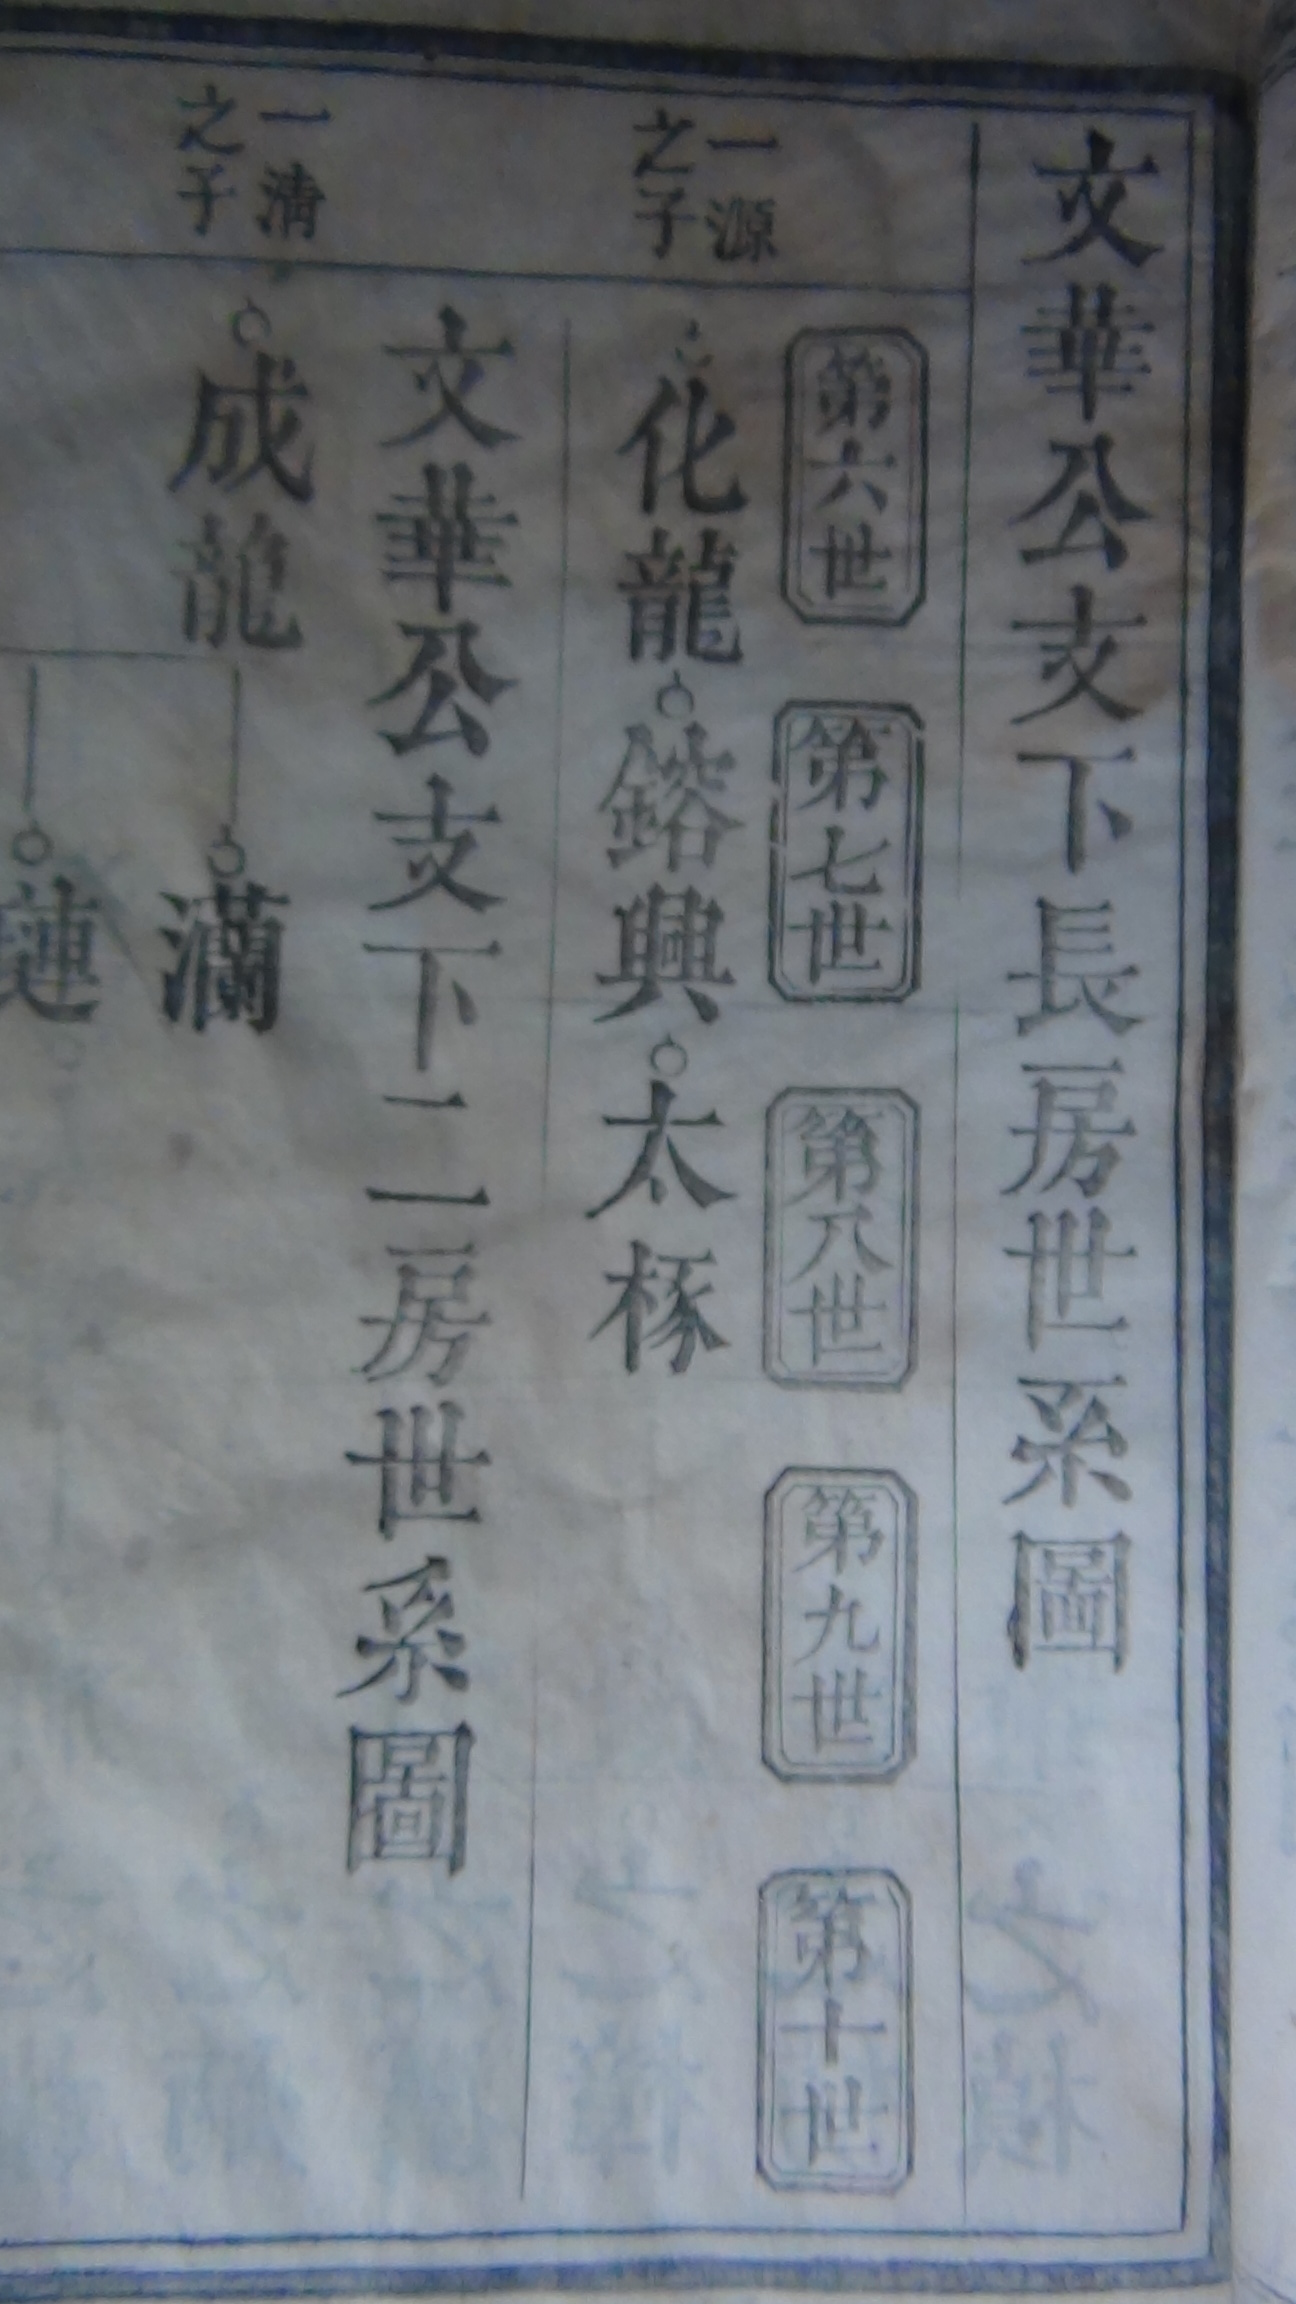 文華公支下長房世系圖
第六世
第七世
第八世
第九世
第十世
一源
之子
化龍
鎔興
太㭬
文華公支下二房世系圖
一清
之子
成龍
滿
璉